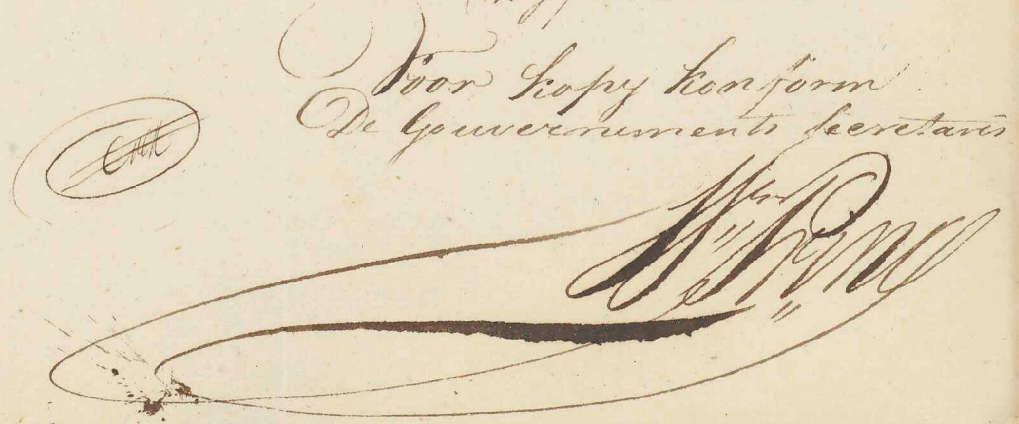 Voor kopy konform
De Gouvernements Secretaris
Wm Prince